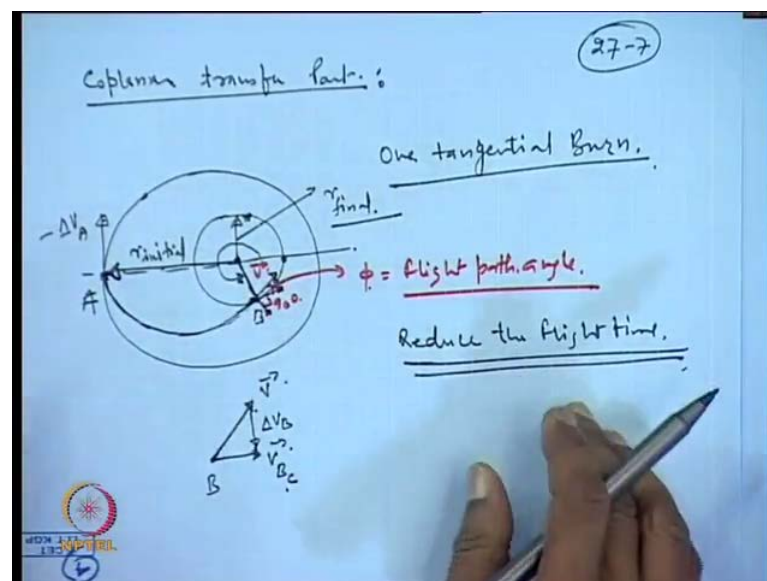 27-7
Coplanar transfer Part.:
One tangential Burn.
r final.
-ΔVA
r initial
A
V
B
90°
φ = flight path angle.
Reduce the flight time.
V
ΔVB
VBc
B
NPTEL
CET
KGP